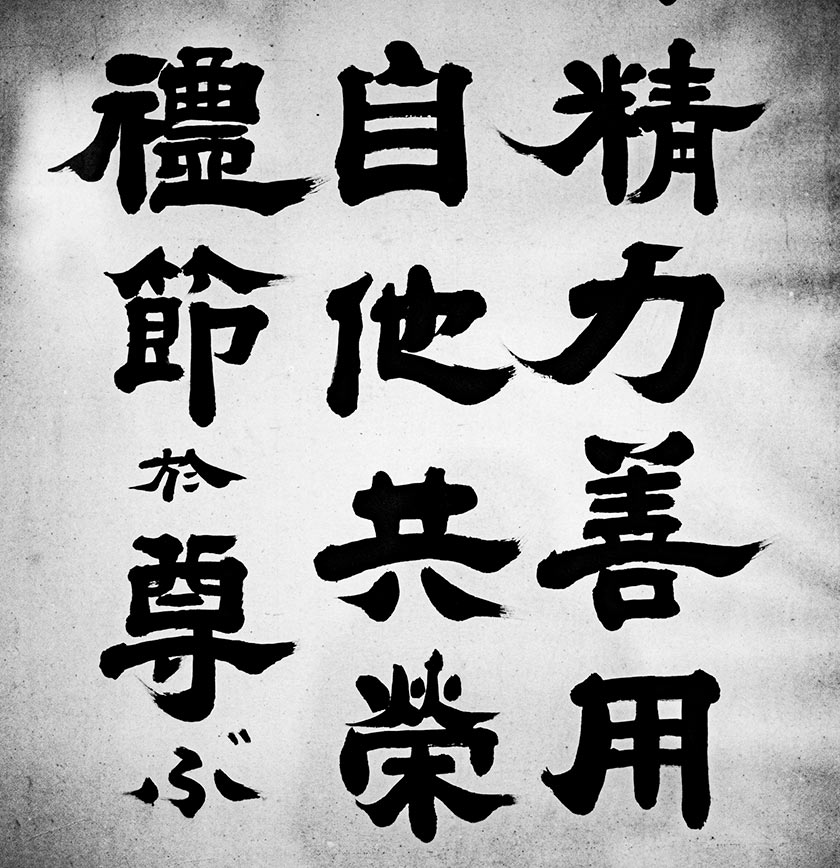 精力善用
自他共榮
禮節於尊ぶ